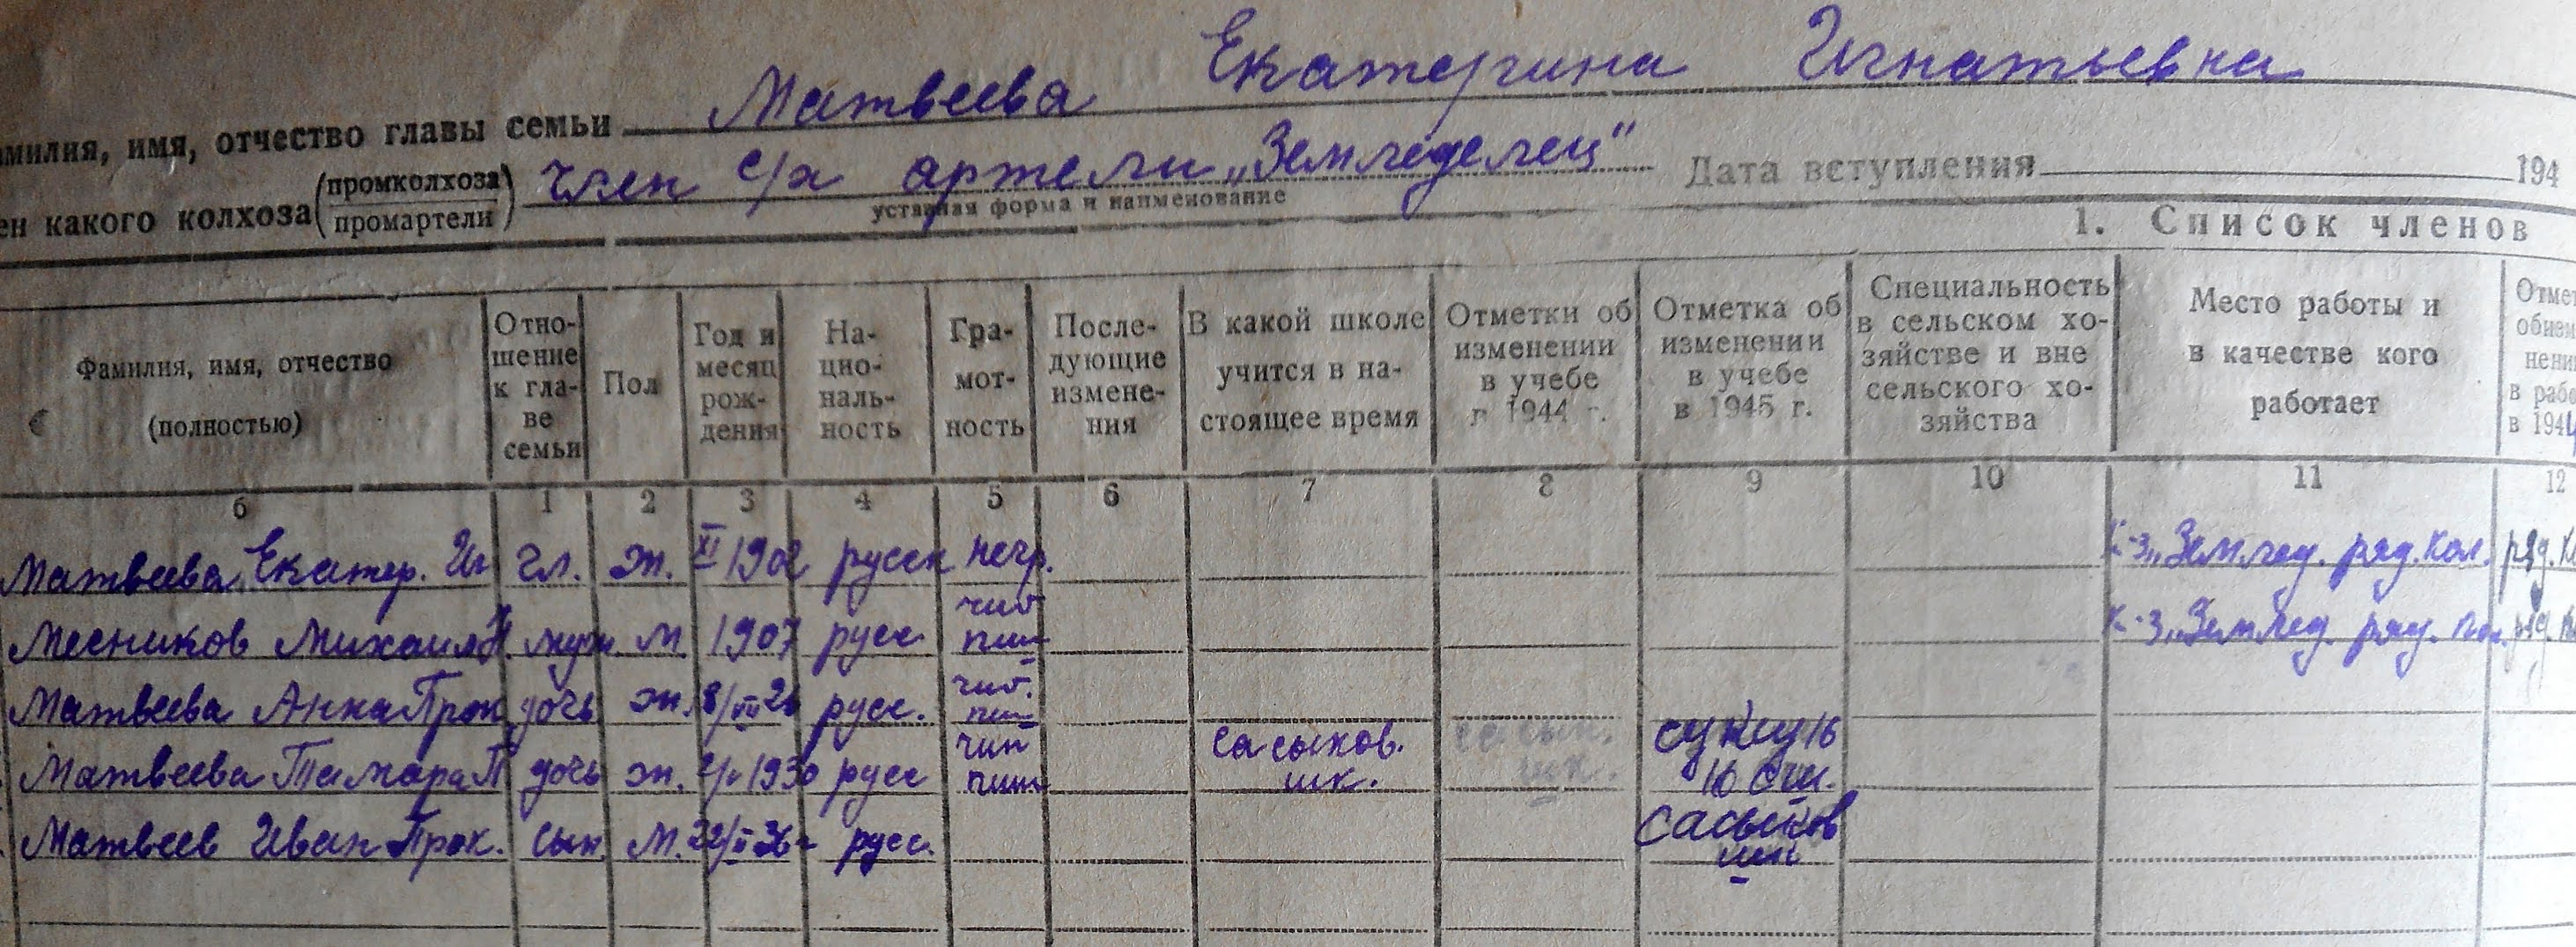 Матвеева Екатерина Игнатьевна
амилия, имя, отчество главы семьи
ен какого колхоза (промколхоза промартели) член с/х артели „Земледелец" Дата вступления 194
уставная форма и наименование
1. Список членов
Фамилия, имя, отчество (полностью) Отно-шение к гла-ве семьи Пол Год и месяц рож-дения На-цио-наль-ность Гра-мот-ность После-дующие измене-ния В какой школе учится в на-стоящее время Отметки об изменении в учебе в 1944 г. Отметка об изменении в учебе в 1945 г. Специальность в сельском хо-зяйстве и вне сельского хо-зяйства Место работы и в качестве кого работает Отмет в 194
б 1 2 3 4 5 6 7 8 9 10 11 12
Матвеева Екатер. Иг гл. ж. XI 1902 русск негр. к-з „Землед. ряд. кол. ряд. к
Месников Михаил муж. м 1907 русс. к-з „Землед. ряд. ряд
Матвеева Анна Прок дочь ж. русс.
Матвеева Тамара П дочь ж. 1930 русс чит пиш сасыков. шк. сасык. шк.
Матвеев Иван Прок. сын м. 36г русс. Сасыков шк